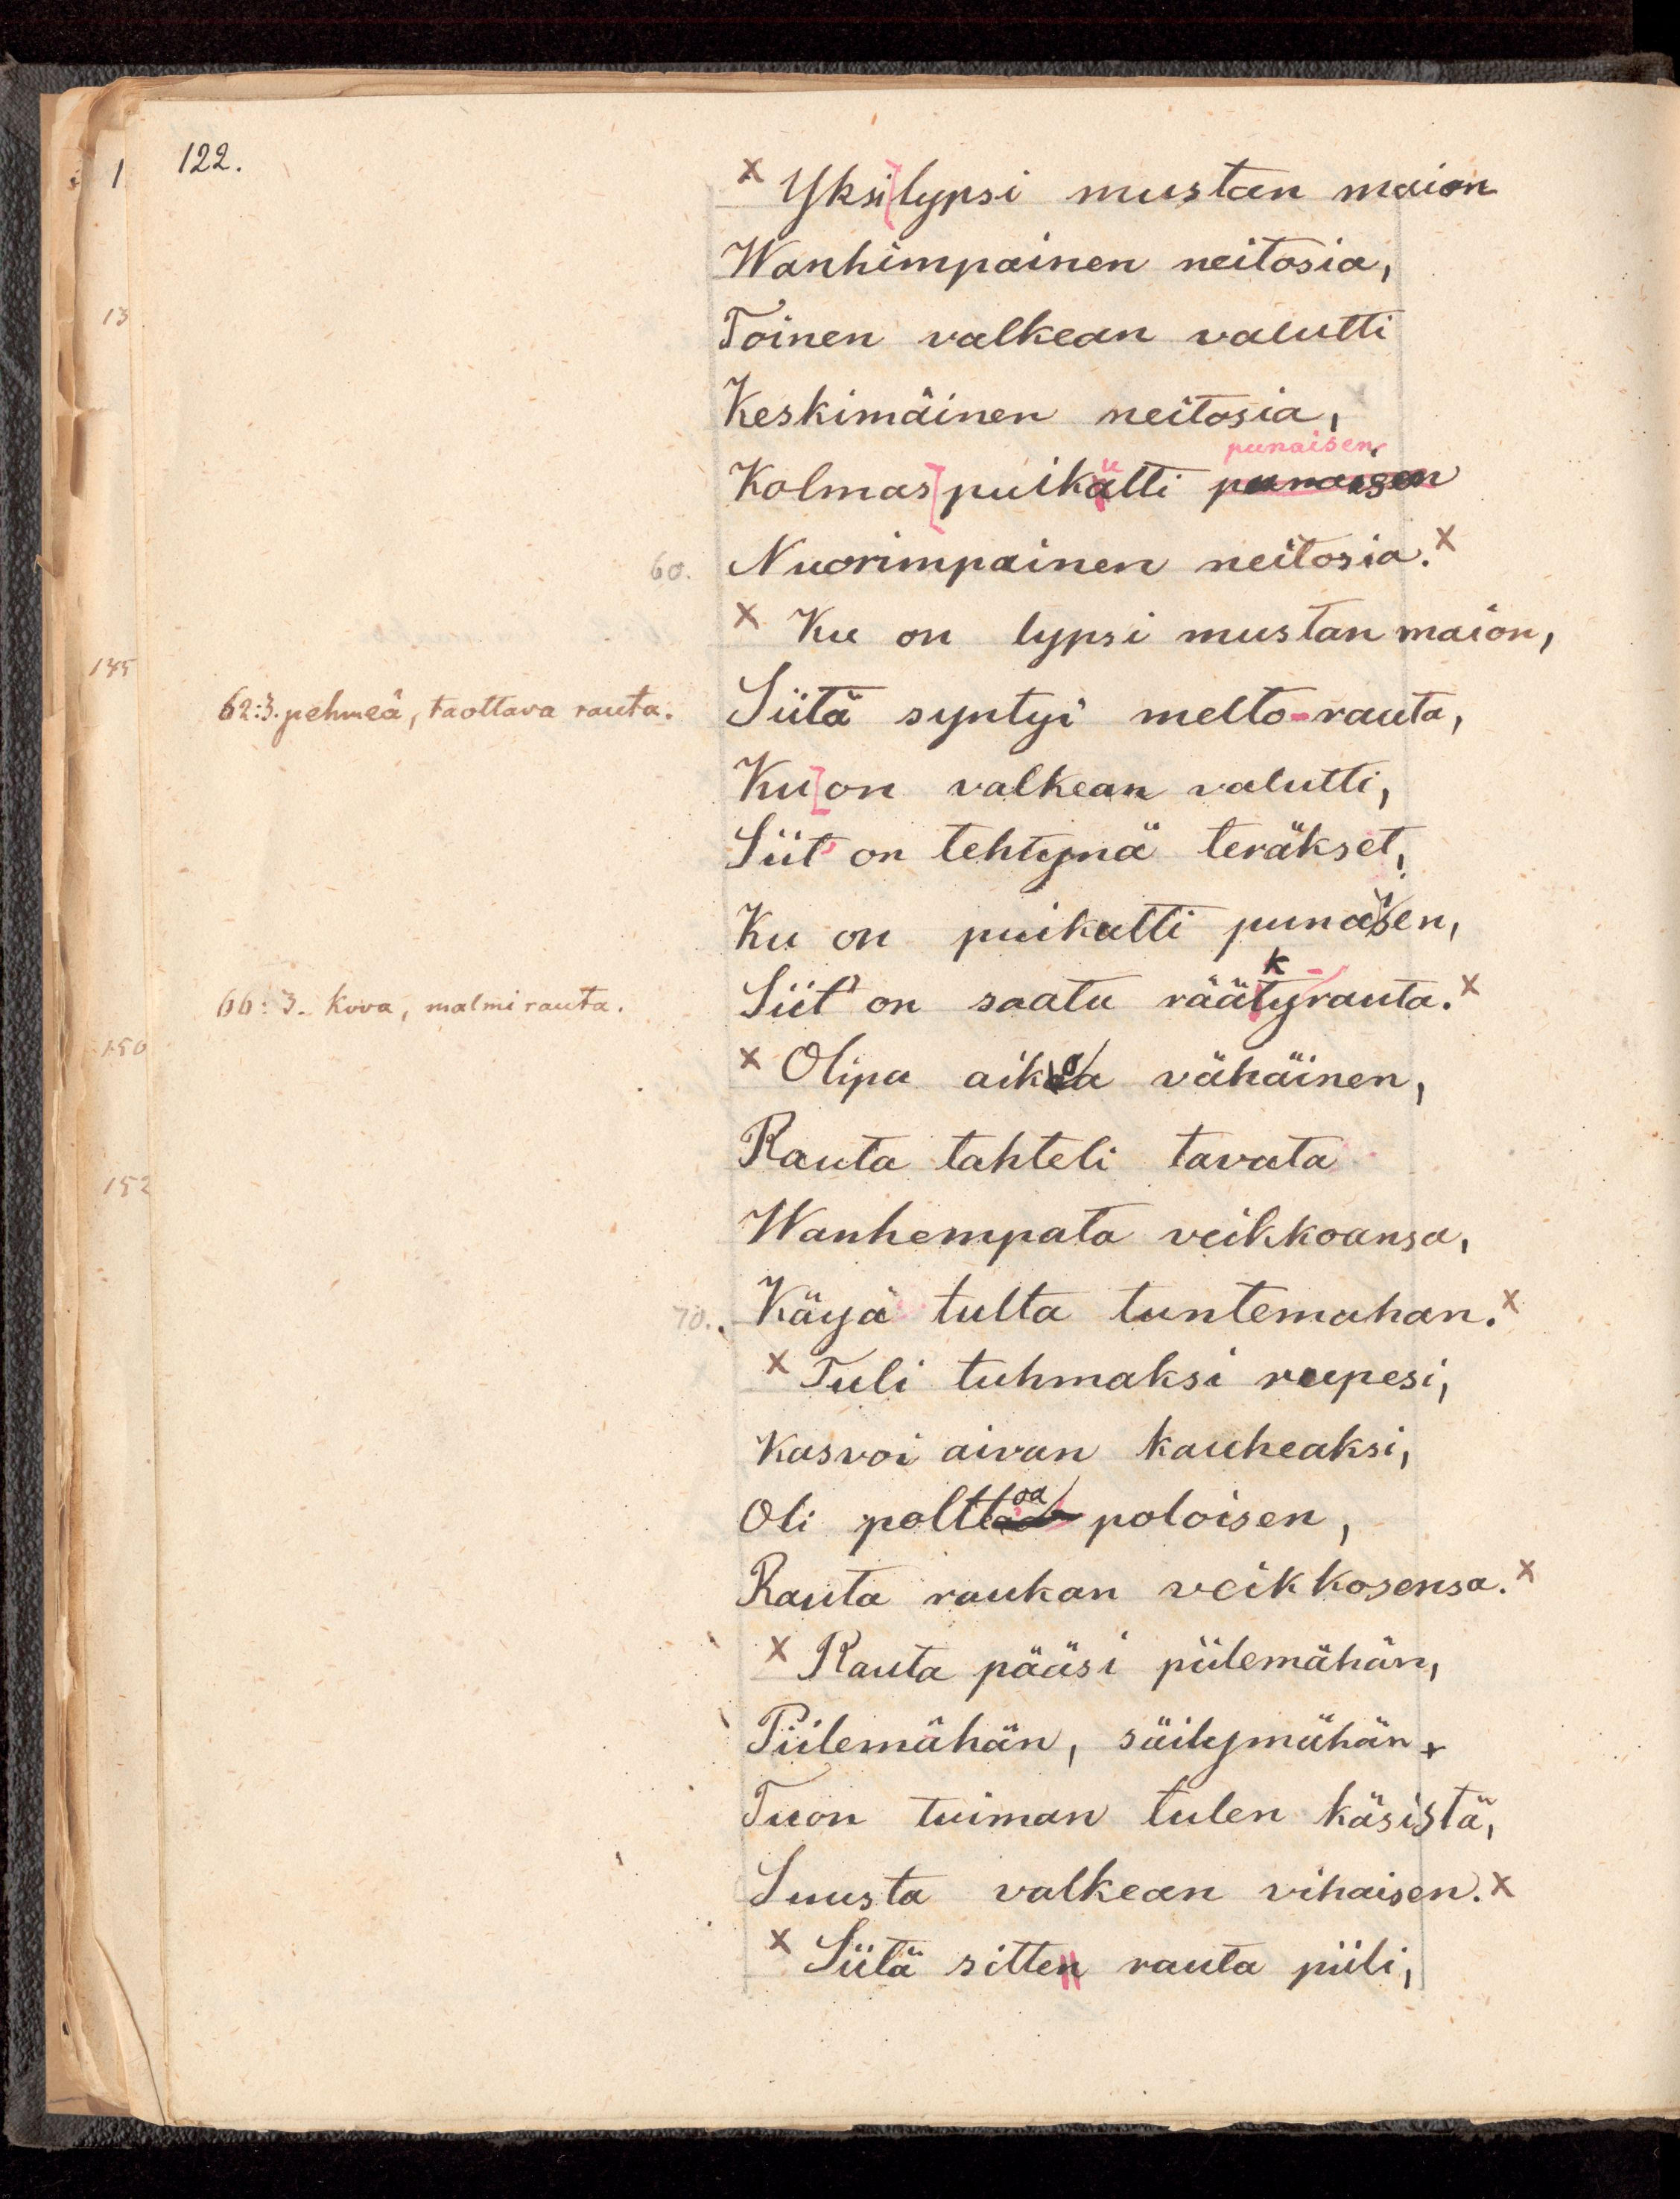 122.
x Yksi[lypsi mustan maion
Wanhimpainen neitosia,
13
Toinen valkean valutti
Keskimäinen neitosia,
punaisen
Kolmas[puikutti punaisen
60. Nuorimpainen neitosia.x
x Ku on lypsi mustan maion,
145
62:3. pehmeä, taottava rauta. Siitä syntyi melto-rauta,
Ku[on valkean valutti,
Siit' on tehtynä teräkset,
Ku on puikutti punaisen,
k -
66: 3. kova, malmirauta. Siit' on saatu räätyrauta.x
150
x Olipa aikoa vähäinen,
Rauta tahteli tavata
152
Wanhempata veikkoansa,
70. Käyä tulta tuntemahan.x
x Tuli tuhmaksi rupesi,
Kasvoi aivan kauheaksi,
oa
Oli poltt poloisen,
Rauta raukan veikkosensa.x
x Rauta pääsi piilemähän,
Piilemähän, säilymähän
Tuon tuiman tulen käsistä,
Suusta valkean vihaisen.x
x Siitä sitten rauta piili,